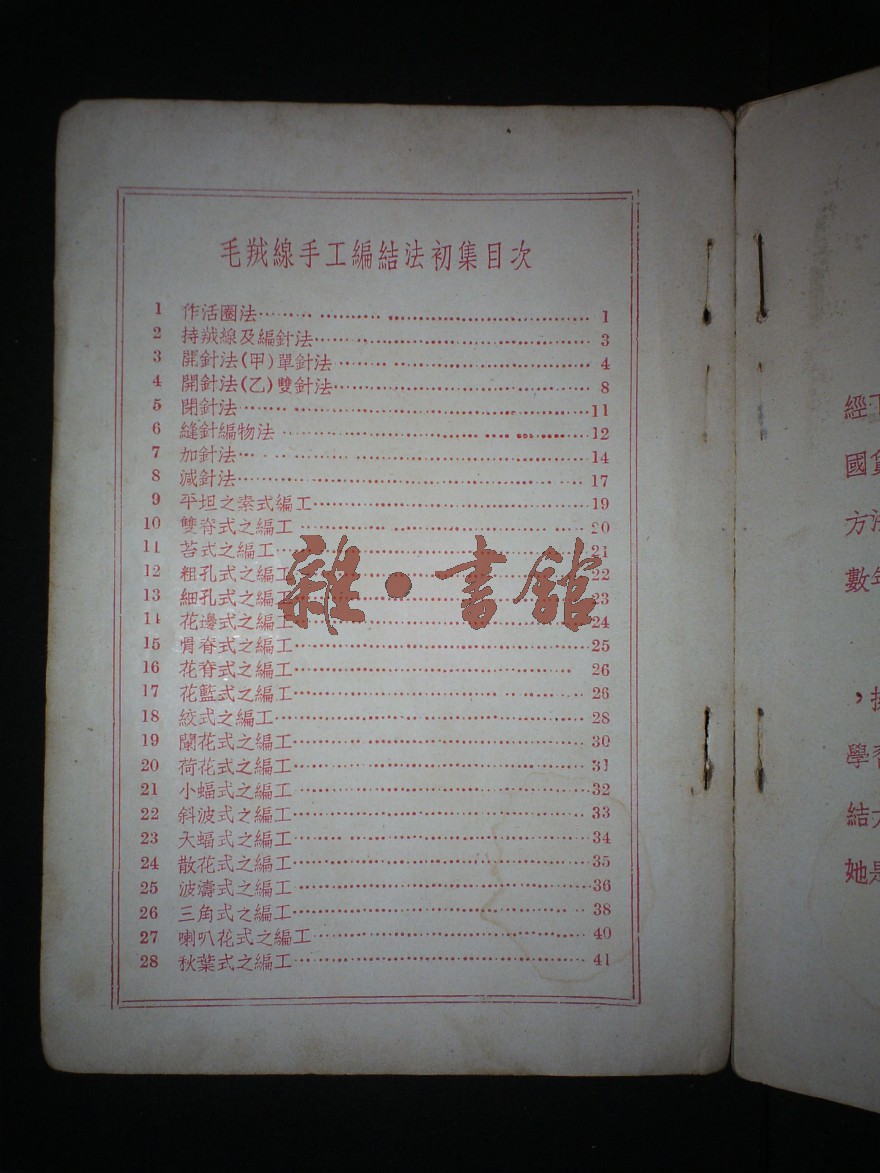 毛羢線手工編結法初集目次
1 作活圈法 1
2 持羢線及編針法 3
3 開針法(甲)單針法 4
4 開針法(乙)雙針法 8
5 閉針法 11
6 縫針編物法 12
7 加針法 14
8 減針法 17
9 平坦之素式編工 19
10 雙脊式之編工 20
11 苔式之編工 21
12 粗孔式之編工 22
13 細孔式之編工 23
14 花邊式之編工 24
15 骨脊式之編工 25
16 花脊式之編工 26
17 花籃式之編工 26
18 絞式之編工 28
19 闌花式之編工 30
20 荷花式之編工 31
21 小蝠式之編工 32
22 斜波式之編工 33
23 大蝠式之編工 34
24 散花式之編工 35
25 波濤式之編工 36
26 三角式之編工 38
27 喇叭花式之編工 40
28 秋葉式之編工 41
雜·書館
經
國
方
數
,
學
結
她